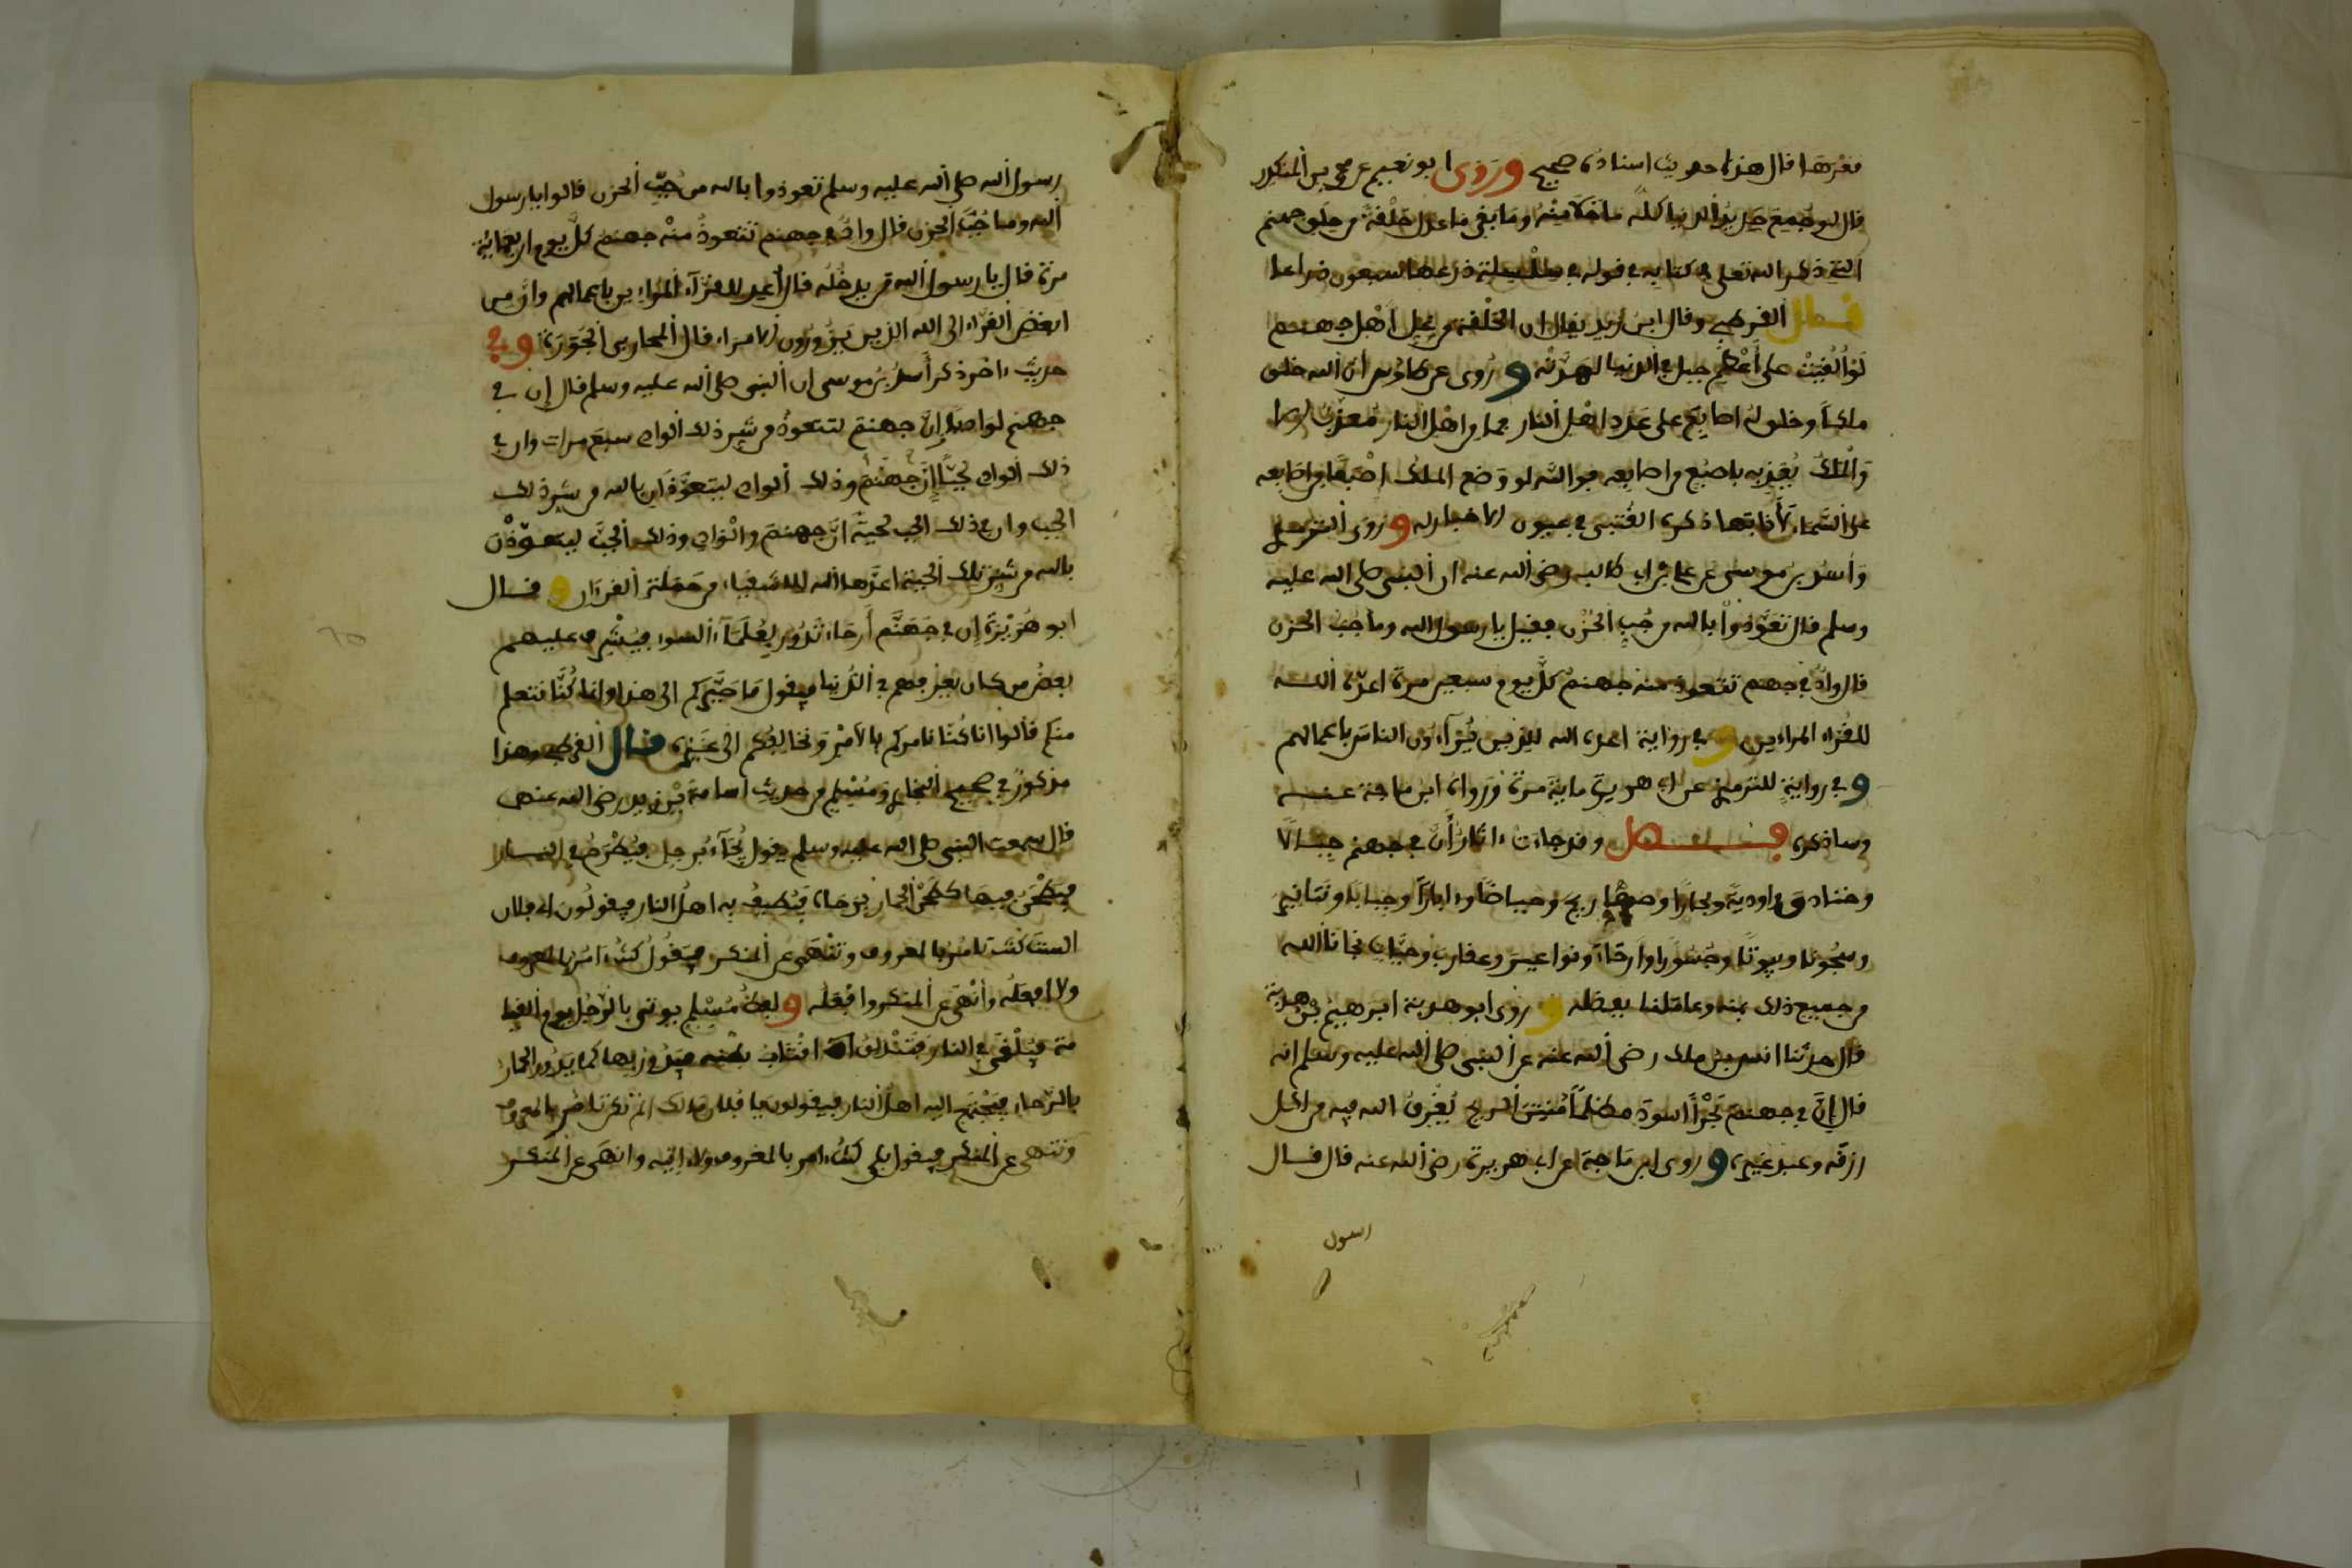 قعرها قال هذا حديث اسناده صحيح وروى ابو نعيم عن محمد بن المنكدر
قال لو جمع حديد الدنيا كله ما خلا منه وما بقي ما عدل حلقة من حلق جهنم
التي ذكر الله تعلى في كتابه في قوله في سلسلة ذرعها سبعون ذراعا
فصل القرطبي وقال ابن زيد يقال ان الحلقة من غل اهل جهنم
لو القيت على اعظم جبل في الدنيا لهدته وروى عن طاوس ان الله خلق
ملكا وخلق له اصابع على عدد اهل النار فما من اهل النار معذب الا
والملك يعذبه باصبع من اصابعه فوالله لو وضع الملك اصبعا من اصابعه
على السماء لأذابها ذكره القتبي في عيون الاخبار له وروى الترمذي
وأسد بن موسى عن علي بن ابي طالب رضي الله عنه ان النبي صلى الله عليه
وسلم قال تعوذوا بالله من جب الحزن فقيل يا رسول الله وما جب الحزن
قال واد في جهنم تتعوذ منه جهنم كل يوم سبعين مرة اعده الله
للقراء المراءين وفي رواية اعده الله للذين يراءون الناس باعمالهم
وفي رواية للترمذي عن ابي هريرة ماية مرة ورواه ابن ماجة عنه
وساذكره فصل وقد جاءت ءاثار أن في جهنم جبالا
وخنادق واودية وبحارا وصهاريج وحياضا وءابارا وجبابا وتنانير
وسجونا وبيوتا وجسورا وارحاء ونواعير وعقارب وحيات نجانا الله
من جميع ذلك بمنه وعاملنا بفضله وروى ابو هدبة ابرهيم بن هدبة
قال حدثنا انس بن ملك رضي الله عنه عن النبي صلى الله عليه وسلم انه
قال إن في جهنم بحرا اسود مظلما منتن الريح يغرق الله فيه من اكل
رزقه وعبد غيره وروى ابن ماجة عن ابي هريرة رضي الله عنه قال قال
رسول
رسول الله صلى الله عليه وسلم تعوذوا بالله من جب الحزن قالوا يا رسول
الله وما جب الحزن قال واد في جهنم تتعوذ منه جهنم كل يوم اربعماية
مرة قال يا رسول الله من يدخله قال أعد للقراء المراءين باعمالهم وان من
ابغض القراء الى الله الذين يزورون الامراء قال المحاربي الجورة وفي
حديث ءاخر ذكر أسد بن موسى ان النبي صلى الله عليه وسلم قال إن في
جهنم لواديا إن جهنم لتتعوذ من شر ذلك الوادي سبع مرات وان في
ذلك الوادي لجبا إن جهنم وذلك الوادي ليتعوذان بالله من شر ذلك
الجب وان في ذلك الجب لحية ان جهنم والوادي وذلك الجب ليتعوذن
بالله من شر تلك الحية اعدها الله للاشقياء من حملة القرءان وقال
ابو هريرة إن في جهنم أرحاء تدور بعلماء السوء فيشرف عليهم
بعض من كان يعرفهم في الدنيا فيقول ما صيركم الى هذا وانما كنا نتعلم
منكم قالوا انا كنا نامركم بالامر ونخالفكم الى غيره قال القرطبي وهذا
مذكور في صحيح البخاري ومسلم من حديث اسامة بن زيد رضي الله عنه
قال سمعت النبي صلى الله عليه وسلم يقول يجاء برجل فيطرح في النار
فيطحن فيها كطحن الحمار برحاه فيطيف به اهل النار فيقولون اي فلان
الست كنت تامر بالمعروف وتنهى عن المنكر فيقول كنت ءامر بالمعروف
ولا افعله وأنهى عن المنكر وافعله ولفظ مسلم يوتى بالرجل يوم القيا
مة فيلقى في النار فتندلق اقتاب بطنه فيدور بها كما يدور الحمار
بالرحاء فيجتمع اليه اهل النار فيقولون يا فلان مالك الم تكن تامر بالمعروف
وتنهى عن المنكر فيقول بلى كنت ءامر بالمعروف ولا ءاتيه وانهى عن المنكر